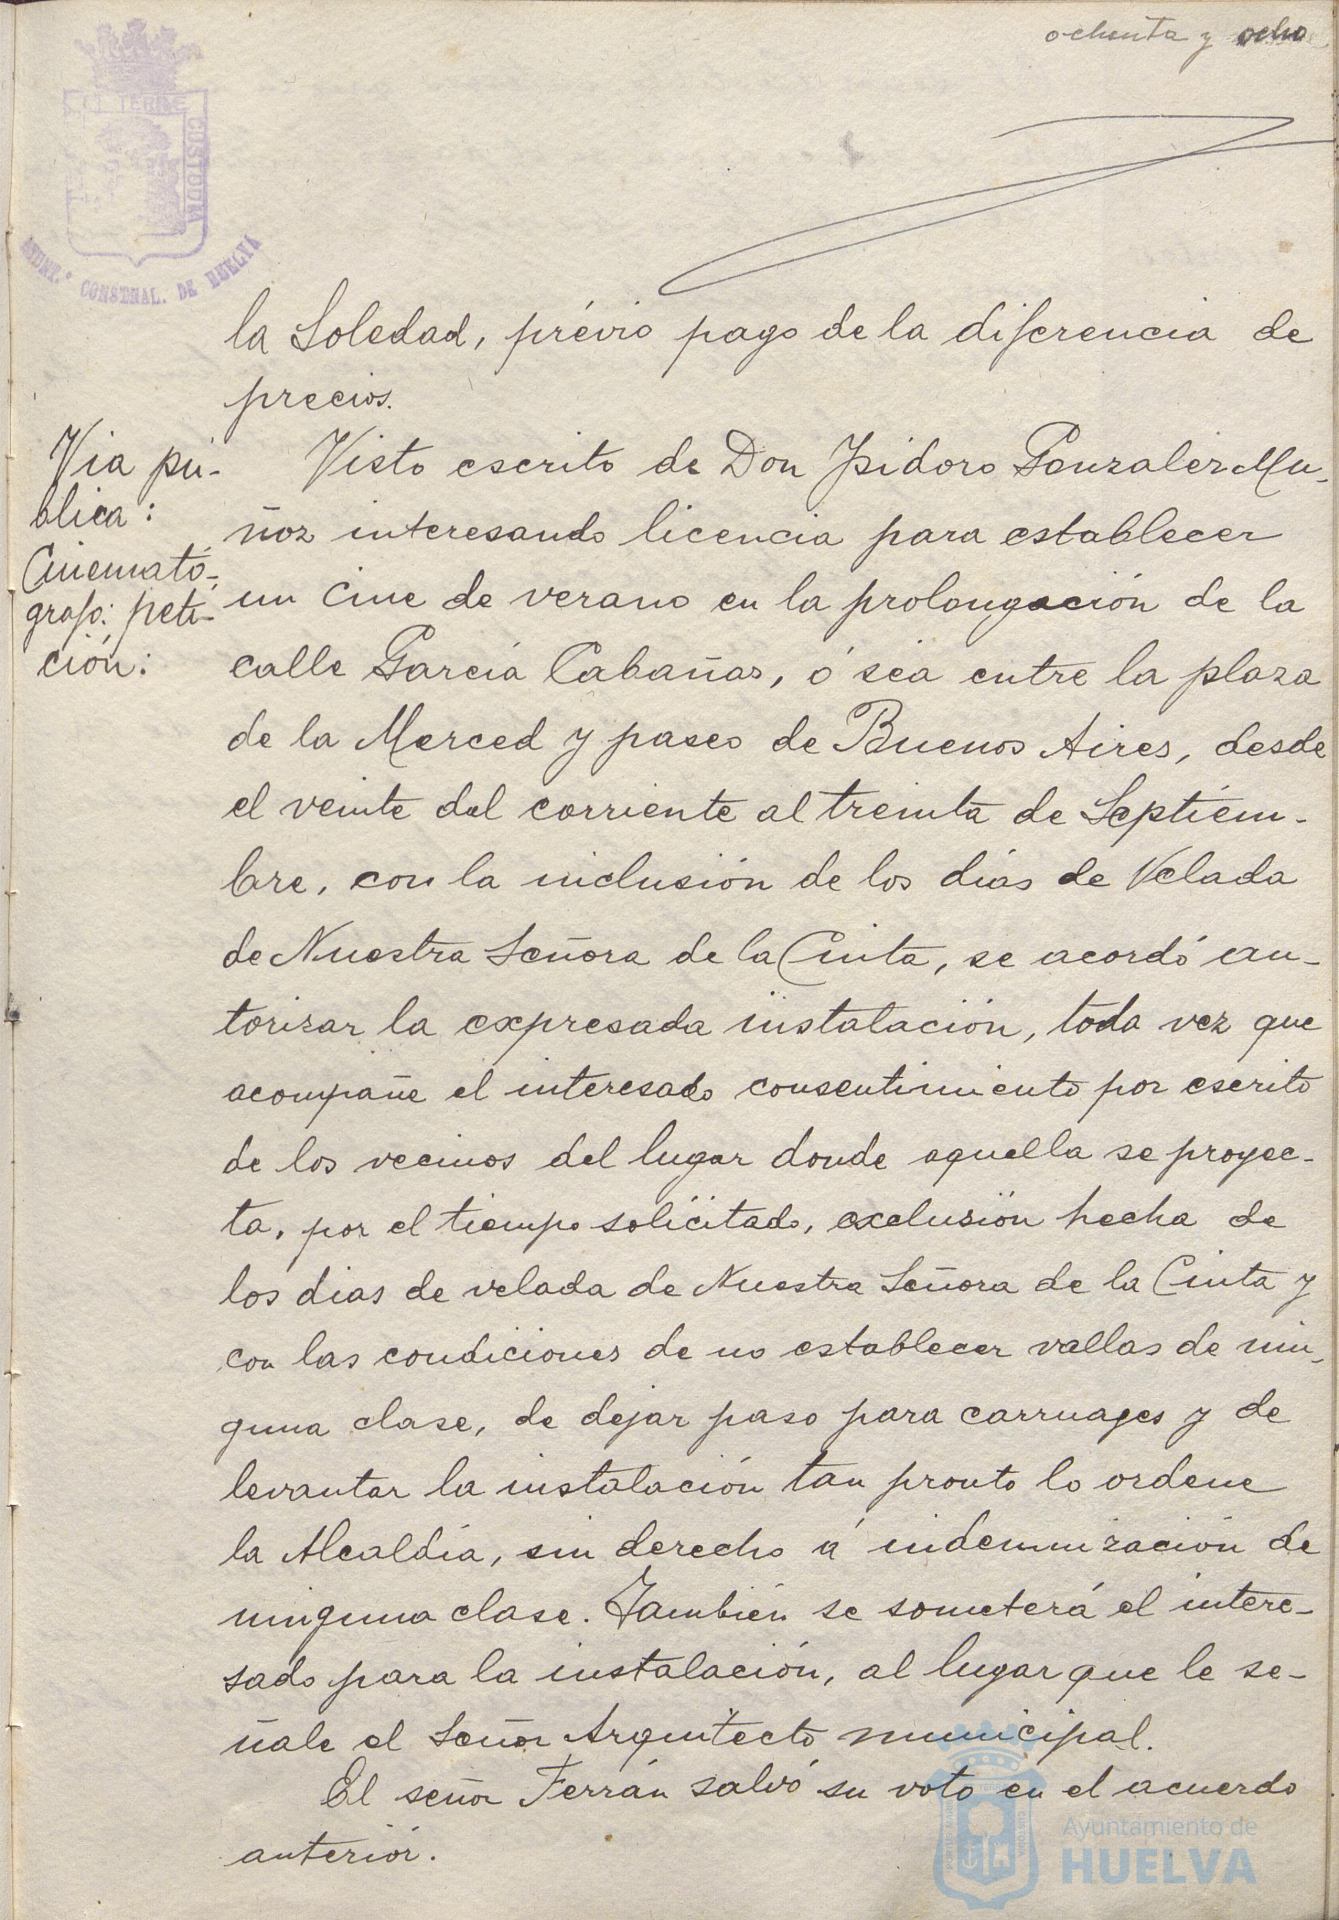 ochenta y ocho
TERRÆ
CUSTODIA
AYUNT.º CONSTNAL. DE HUELVA
la Soledad, prévio pago de la diferencia de
precios.
Via pú-
blica:
Cinemató-
grafo: peti-
ción:
Visto escrito de Don Isidoro Gonzalez Mu-
ñoz interesando licencia para establecer
un cine de verano en la prolongación de la
calle García Cabañas, ó sea entre la plaza
de la Merced y paseo de Buenos Aires, desde
el veinte del corriente al treinta de Septiem-
bre, con la inclusión de los días de Velada
de Nuestra Señora de la Cinta, se acordó au-
torizar la expresada instalación, toda vez que
acompañe el interesado consentimiento por escrito
de los vecinos del lugar donde aquella se proyec-
ta, por el tiempo solicitado, exclusión hecha de
los dias de velada de Nuestra Señora de la Cinta y
con las condiciones de no establecer vallas de nin-
guna clase, de dejar paso para carruages y de
levantar la instalación tan pronto lo ordene
la Alcaldía, sin derecho á indemnización de
ninguna clase. También se someterá el intere-
sado para la instalación, al lugar que le se-
ñale el Señor Arquitecto municipal.
El señor Ferrán salvó su voto en el acuerdo
anteriór.
Ayuntamiento de
HUELVA